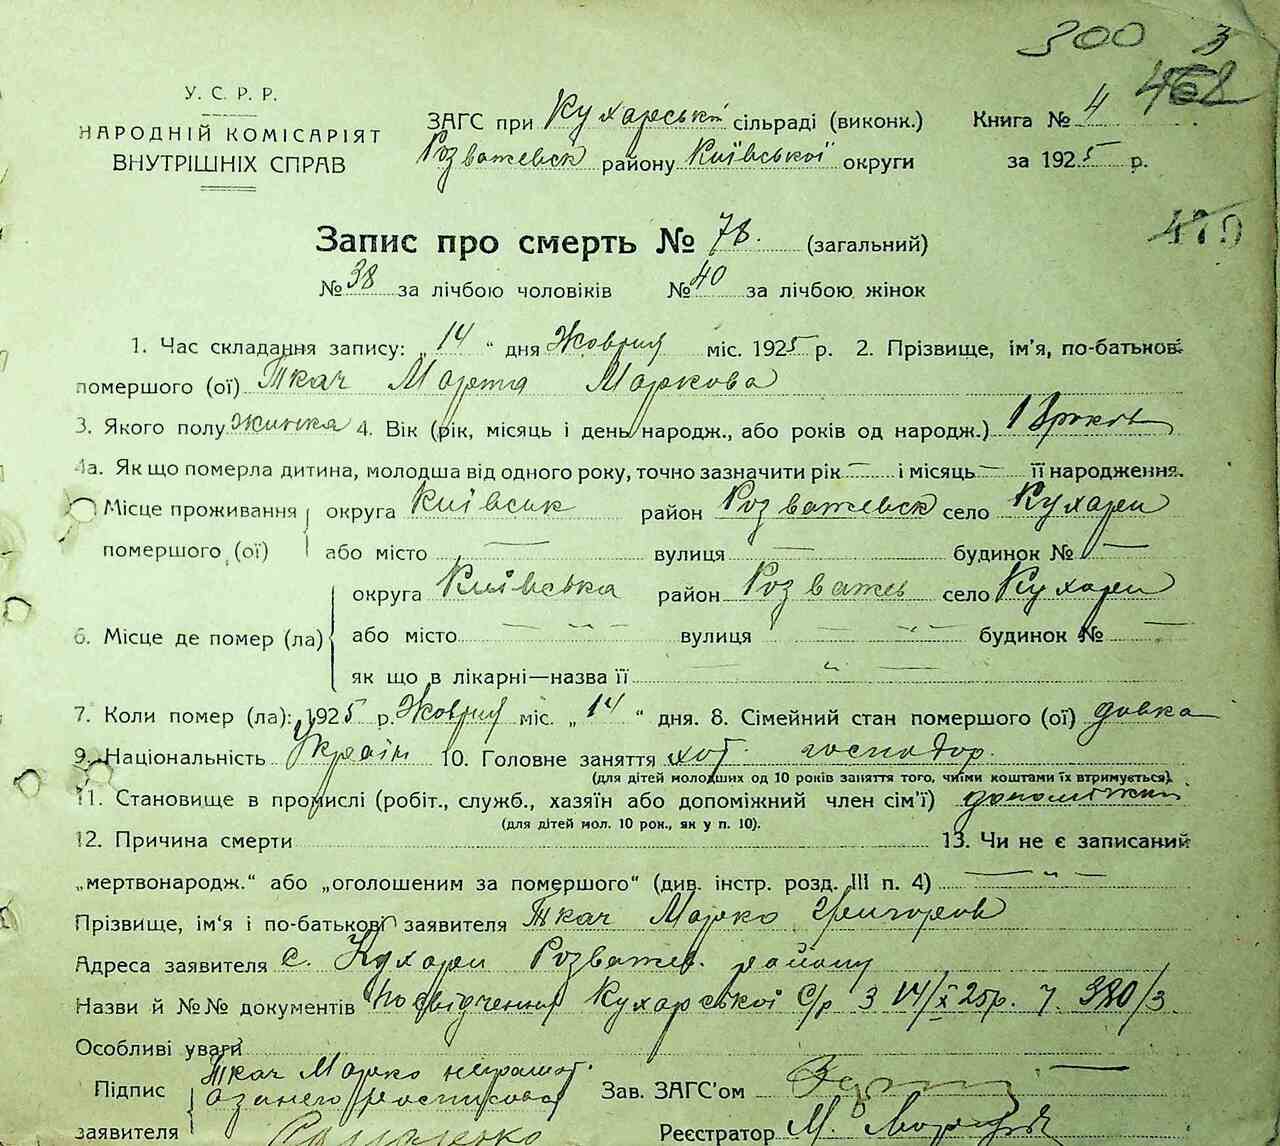 300 3
468
У. С. Р. Р.
НАРОДНІЙ КОМІСАРІЯТ
ВНУТРІШНІХ СПРАВ
ЗАГС при Кухарській сільраді (виконк.) Книга № 4
Розважевск району Київської округи за 1925 р.
479
Запис про смерть № 78. (загальний)
№ 38 за лічбою чоловіків № 40 за лічбою жінок
1. Час складання запису: „14“ дня Жовтня міс. 1925 р. 2. Прізвище, ім'я, по-батькові
помершого (ої) Ткач Марта Маркова
3. Якого полу жинка 4. Вік (рік, місяць і день народж., або років од народж.) 13 років
4а. Як що померла дитина, молодша від одного року, точно зазначити рік — і місяць — її народження.
Місце проживання округа Київськ район Розважевск село Кухари
помершого (ої) або місто — вулиця — будинок № —
округа Київська район Розважев село Кухари
6. Місце де помер (ла) або місто — „ — вулиця — „ — будинок № —
як що в лікарні—назва її — „ —
7. Коли помер (ла): 1925 р. Жовтня міс. „14“ дня. 8. Сімейний стан помершого (ої) дівка
9. Національність Україн 10. Головне заняття хот. господор.
(для дітей молодших од 10 років заняття того, чиїми коштами їх втримується).
11. Становище в промислі (робіт., служб., хазяїн або допоміжний член сім'ї) допоміжний
(для дітей мол. 10 рок., як у п. 10).
12. Причина смерти 13. Чи не є записаний
„мертвонародж.“ або „оголошеним за помершого“ (див. інстр. розд. III п. 4) — „ —
Прізвище, ім'я і по-батькові заявителя Ткач Марко Григоров
Адреса заявителя с. Кухари Розважев. району
Назви й №№ документів посвідчення Кухарської С/р З 14/X 25р. ч. 380/3
Особливі уваги
Підпис Ткач Марко неграмот. Зав. ЗАГС'ом
за нього росписовся
заявителя Реєстратор М.